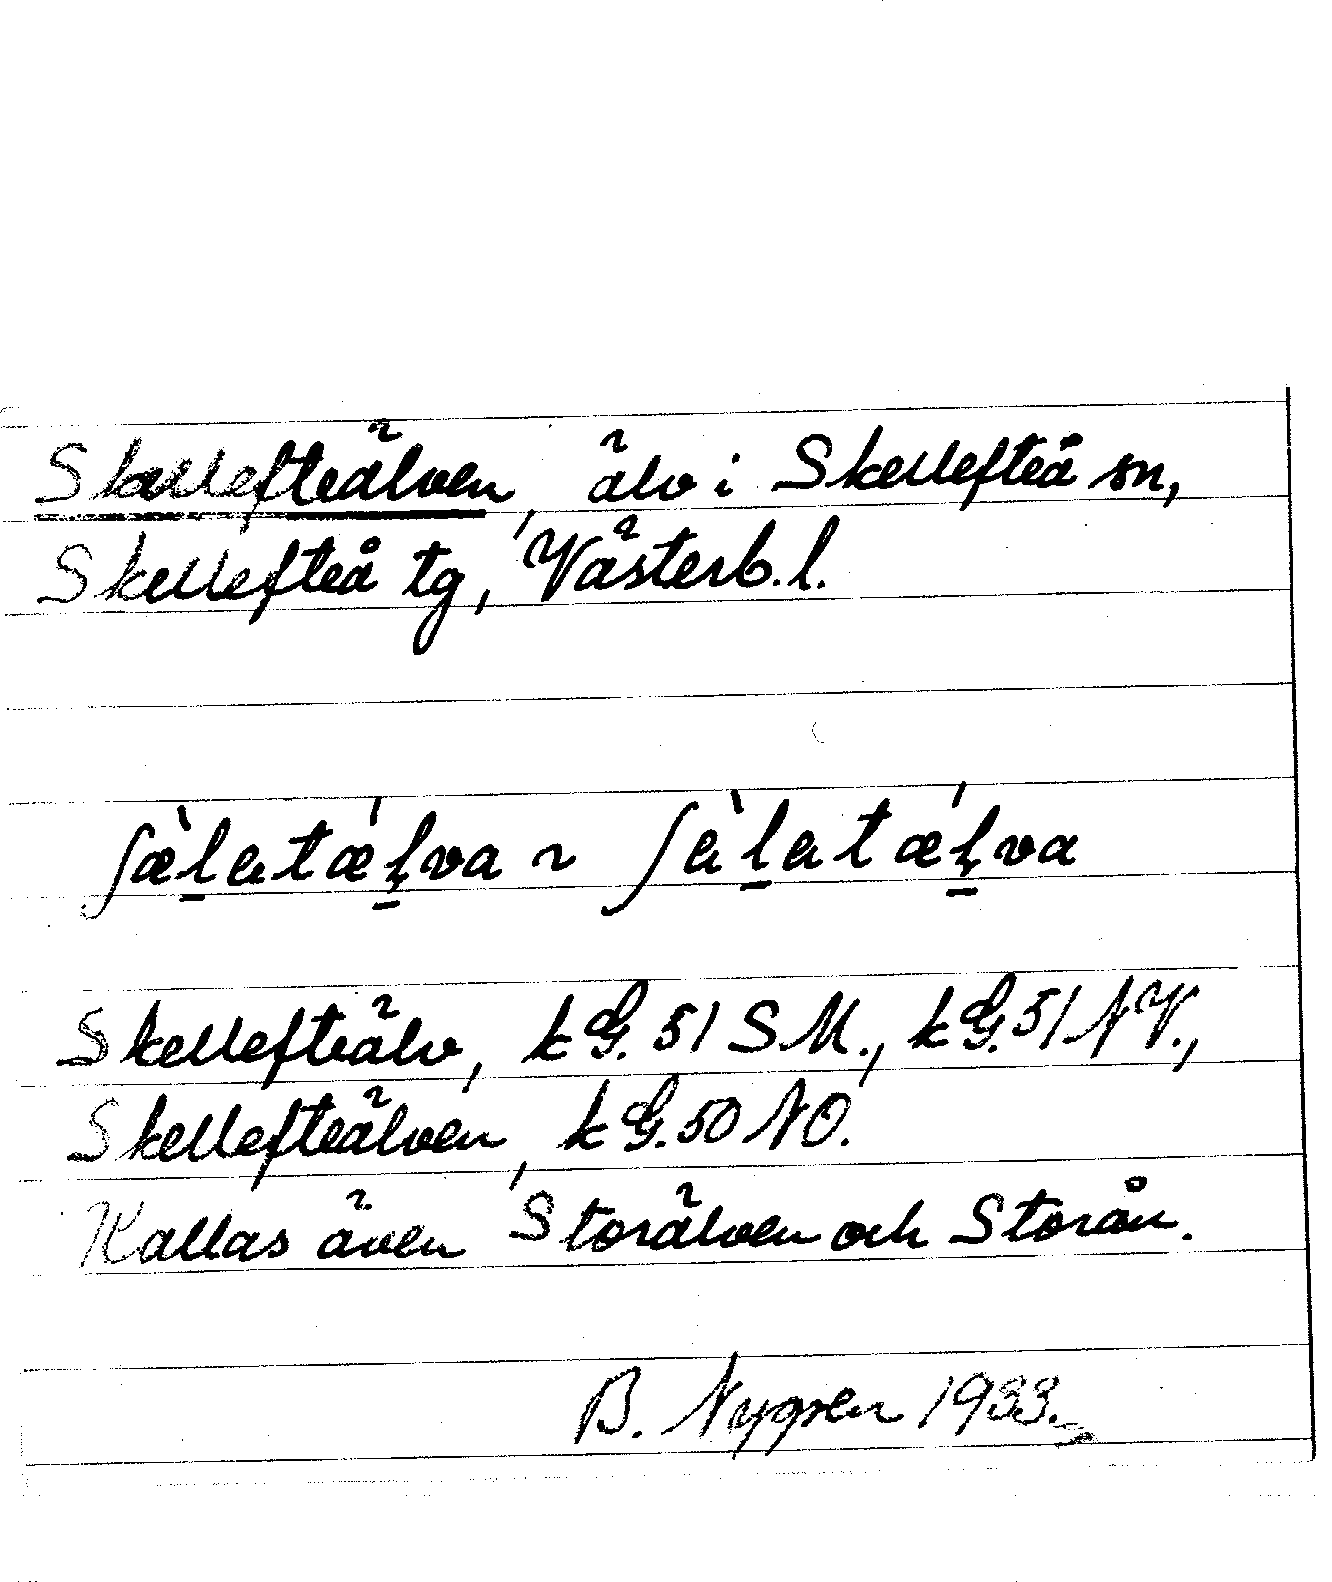 Skellefteälven, älv i Skellefteå sn,
Skellefteå tg, Västerb.l.
ʃæ̀l̠atǽl̠va ~ ʃèl̠atǽl̠va
Skellefteälv, kG. 51 SM., kG. 51 NV.,
Skellefteälven, kG. 50 NO.
Kallas även Storälven och Storån.
B. 1933.